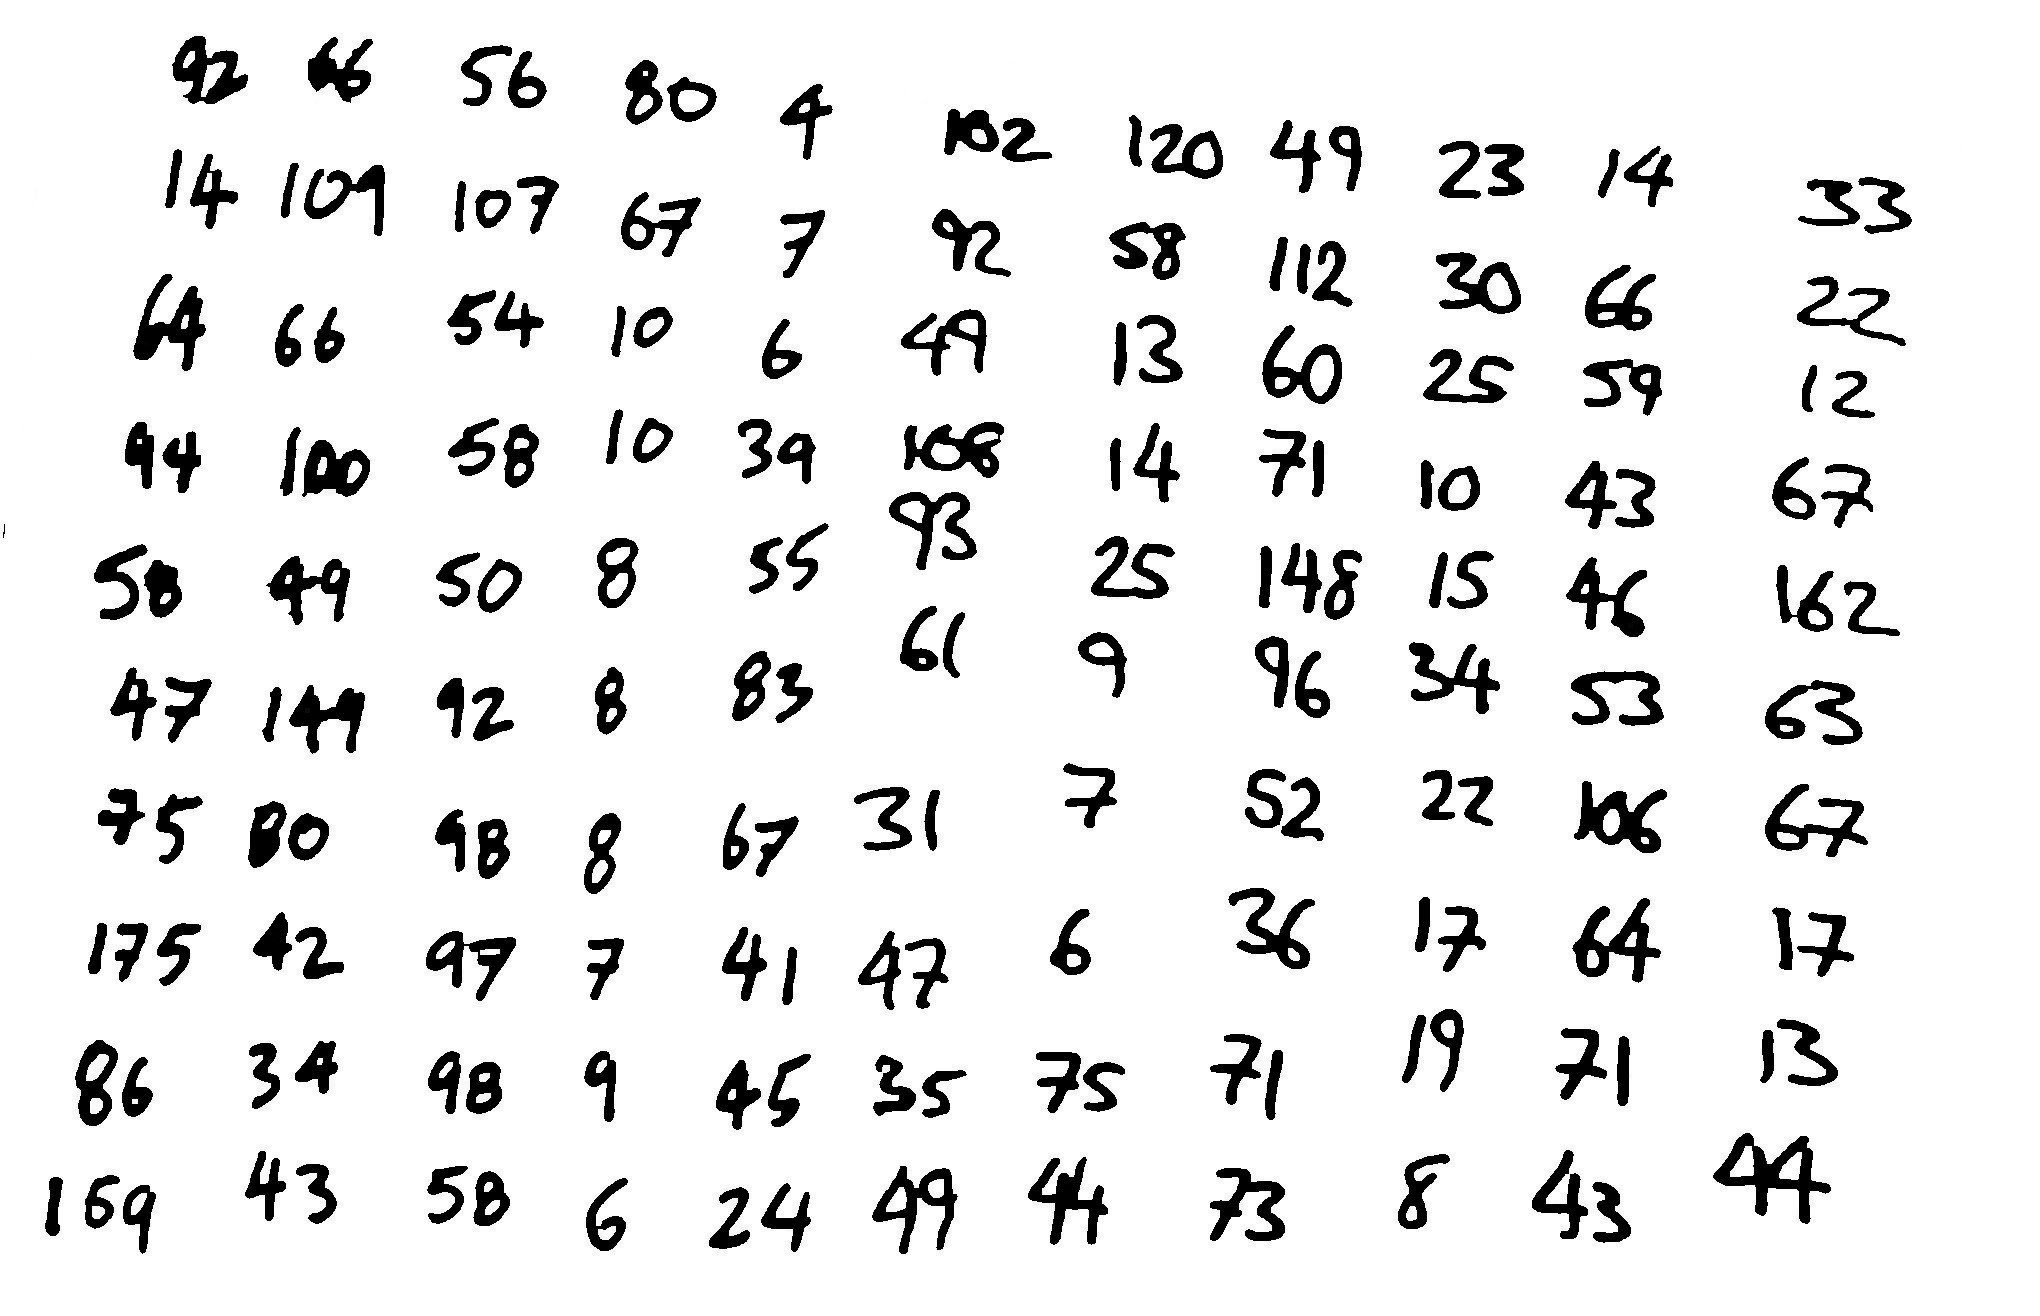 92 66 56 80 4 102 120 49 23 14 33
14 109 107 67 7 92 58 112 30 66 22
64 66 54 10 6 49 13 60 25 59 12
94 100 58 10 39 108 14 71 10 43 67
58 49 50 8 55 93 25 148 15 46 162
47 149 92 8 83 61 9 96 34 53 63
75 80 98 8 67 31 7 52 22 106 67
175 42 97 7 41 47 6 36 17 64 17
86 34 98 9 45 35 75 71 19 71 13
169 43 58 6 24 49 44 73 8 43 44